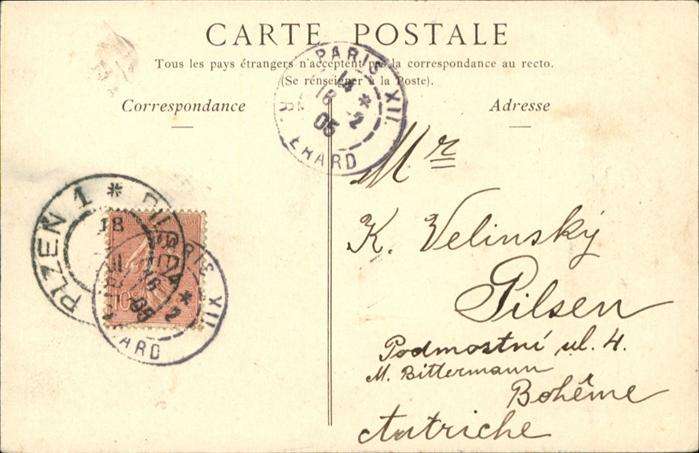 CARTE POSTALE
Tous les pays étrangers n'acceptent pas la correspondance au recto.
(Se renseigner à la Poste).
Correspondance
Adresse
PARIS XII
18
* 2
05
ERARD
Mr
K. Velinský
Pilsen
Podmostní ul. 4.
M. Bittermann
Bohême
Autriche
PLZEN 1 *
18
10
PARIS XII
* 2
05
ERARD